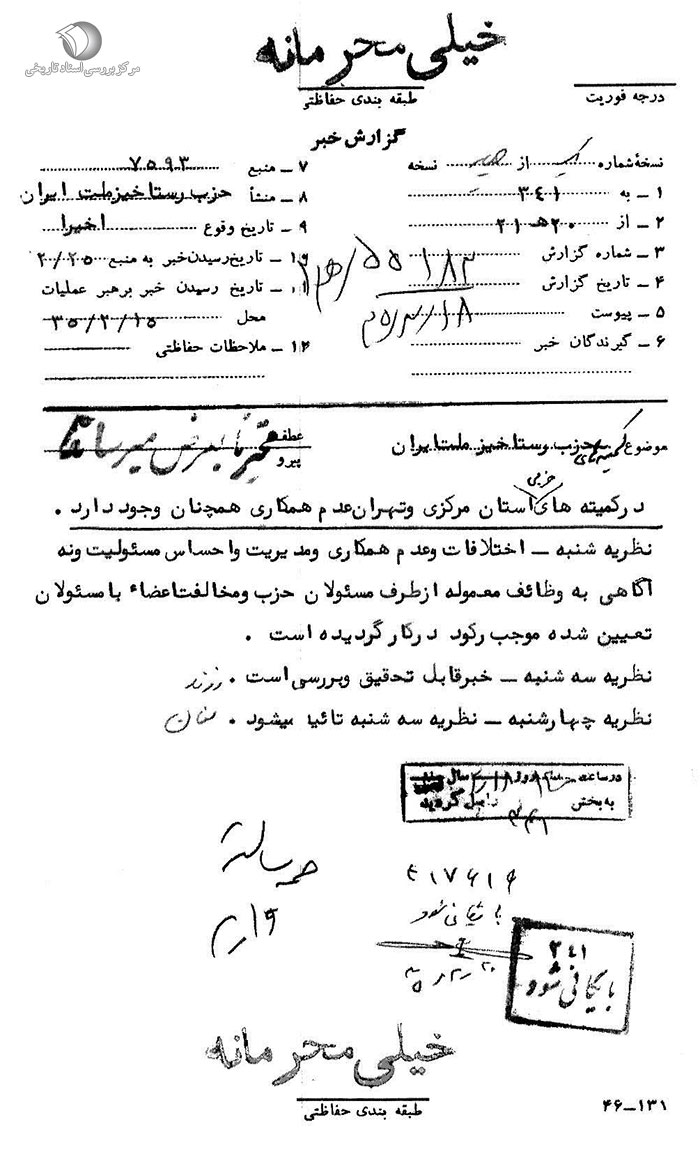 مرکز بررسی اسناد تاریخی
خیلی محرمانه
طبقه بندی حفاظتی
درجه فوریت
گزارش خبر
نسخهٔ شماره از نسخه
۱ ــ به ۳٤۱
۲ ــ از ۲۰ هـ ۲۱
۳ ــ شماره گزارش
۴ ــ تاریخ گزارش
۵ ــ پیوست
۶ ــ گیرندگان خبر
۷ ــ منبع ۷۵۹۳
۸ ــ منشأ حزب رستاخیز ملت ایران
۹ ــ تاریخ وقوع اخیرا
۱۰ ــ تاریخ رسیدن خبر به منبع ۲/۲۵
۱۱ ــ تاریخ رسیدن خبر برهبر عملیات
محل ۳۵/۲/۱۵
۱۲ ــ ملاحظات حفاظتی
موضوع کمیته های حزب رستاخیز ملت ایران
عطف
پیرو
درکمیته های حزبی استان مرکزی وتهران عدم همکاری همچنان وجود دارد .
نظریه شنبه ــ اختلافات وعدم همکاری ومدیریت واحساس مسئولیت ونه
آگاهی به وظائف معموله ازطرف مسئولان حزب ومخالفت اعضاء با مسئولان
تعیین شده موجب رکود درکار گردیده است .
نظریه سه شنبه ــ خبرقابل تحقیق وبررسی است .
نظریه چهارشنبه ــ نظریه سه شنبه تائید میشود .
در ساعت روز سال
به بخش واصل گردید
بایگانی شود
۳٤۱
بایگانی شود
خیلی محرمانه
طبقه بندی حفاظتی
۱۳۱ــ۴۶